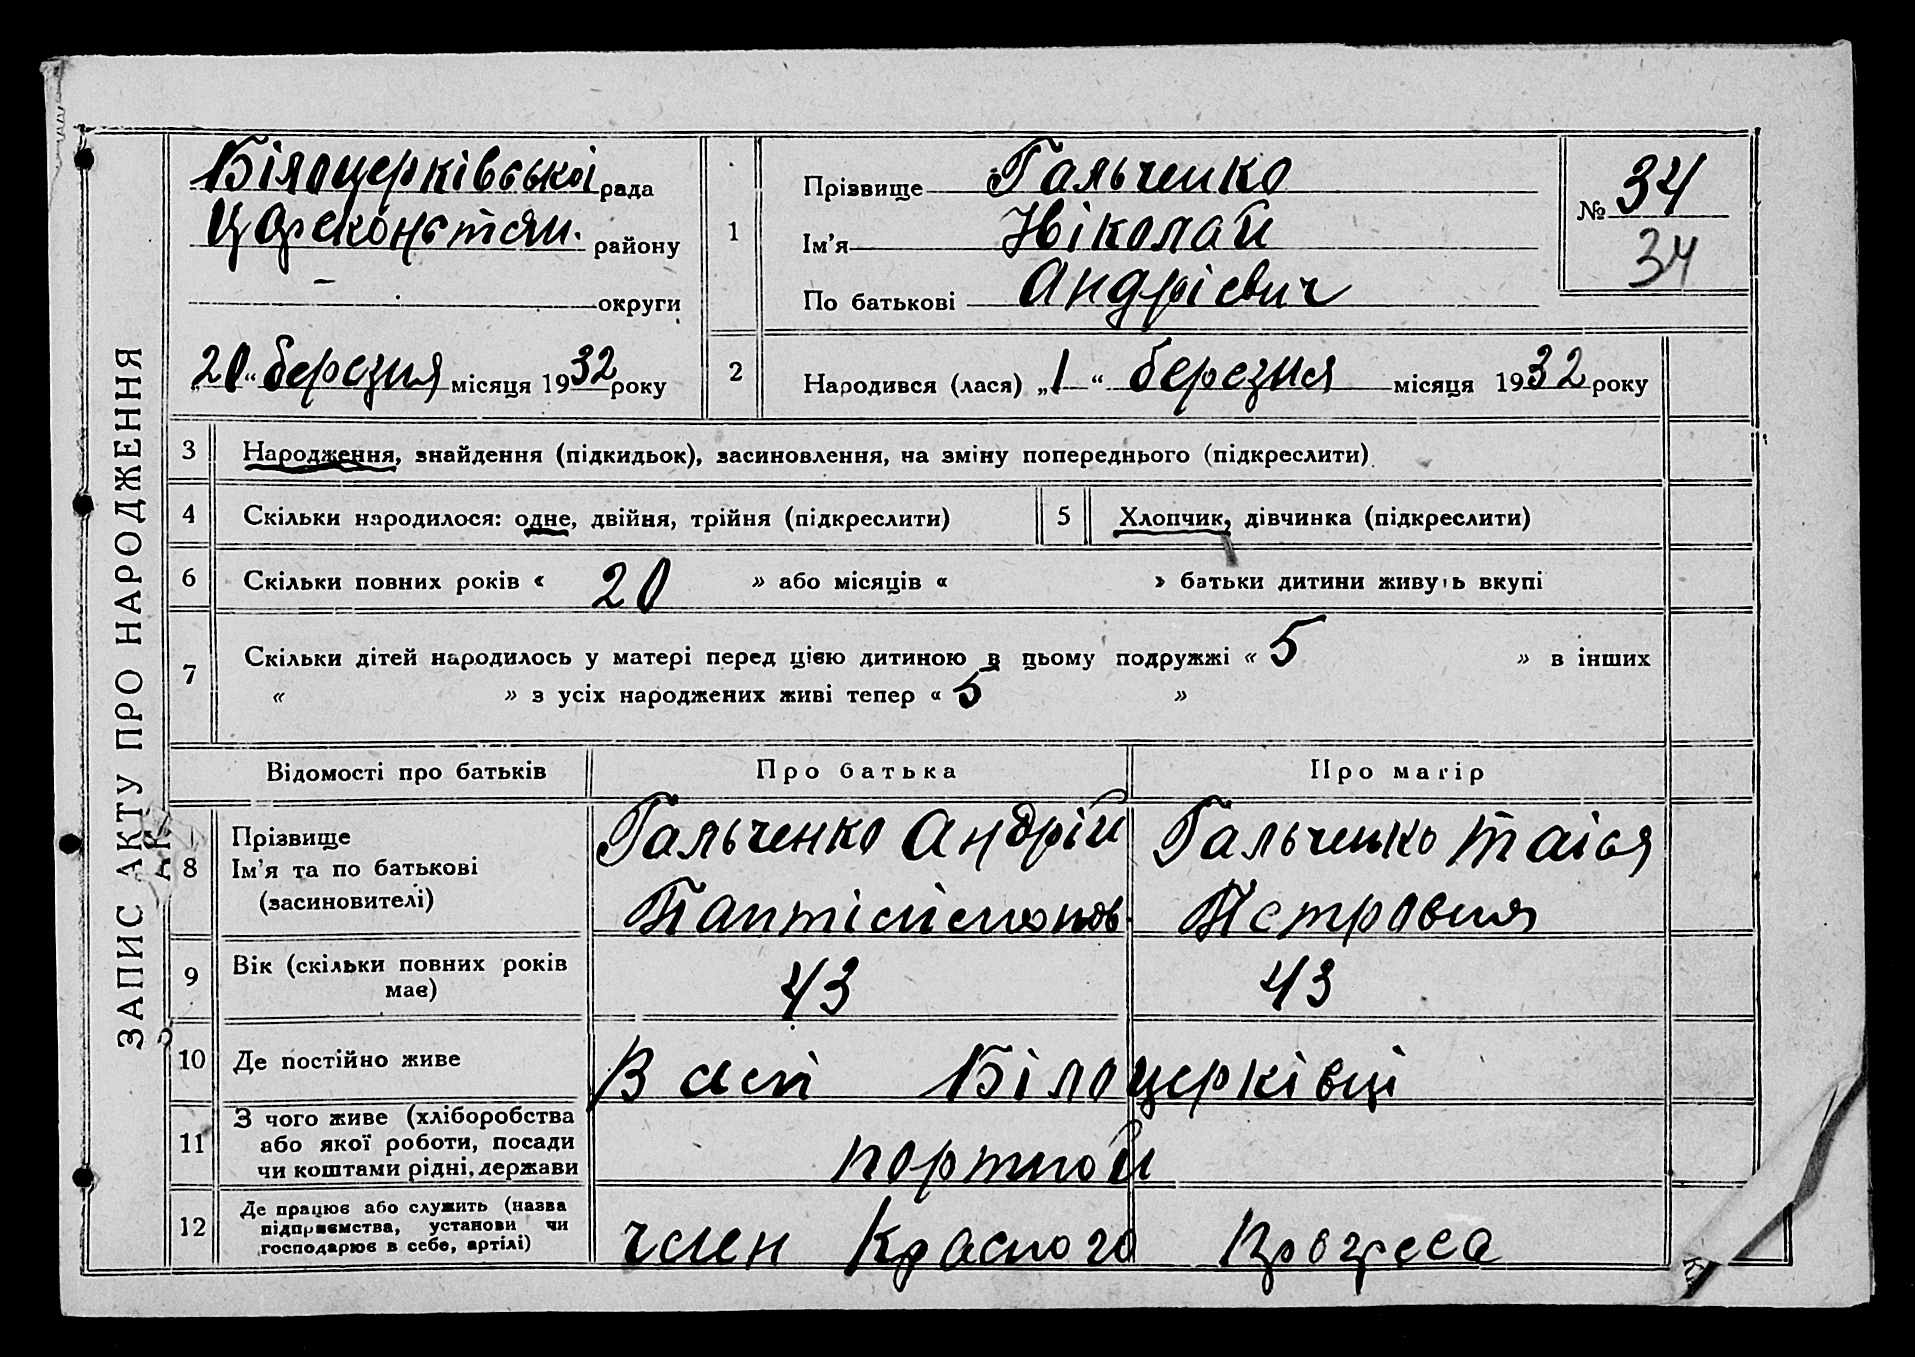 ЗАПИС АКТУ ПРО НАРОДЖЕННЯ
Білоцерківської рада
Цареконстян. району
- округи
20 “ березня місяця 1932 року
1
Прізвище Гальченко
Ім’я Ніколай
По батькові Андрієвич
№ 34
34
2
Народився (лася) „1“ березня місяця 1932 року
3 Народження, знайдення (підкидьок), засиновлення, на зміну попереднього (підкреслити)
4 Скільки народилося: одне, двійня, трійня (підкреслити)
5 Хлопчик, дівчинка (підкреслити)
6 Скільки повних років « 20 » або місяців « » батьки дитини живуть вкупі
7 Скільки дітей народилось у матері перед цією дитиною в цьому подружжі « 5 » в інших
« » з усіх народжених живі тепер « 5 »
Відомості про батьків Про батька Про матір
8 Прізвище
Ім’я та по батькові
(засиновителі)
Гальченко Андрій
Гальченко Таіся
Петровня
9 Вік (скільки повних років
має)
43 43
10 Де постійно живе В селі Білоцерківці
11 З чого живе (хліборобства
або якої роботи, посади
чи коштами рідні, держави
портной
12 Де працює або служить (назва
підприємства, установи чи
господарює в себе, артілі)
член Красного Прогреса